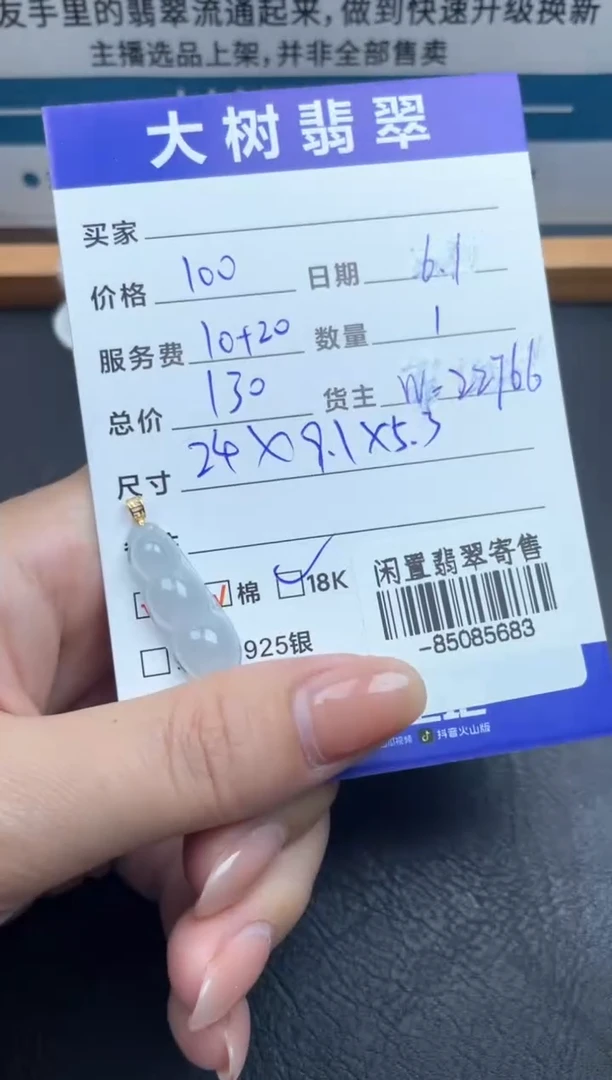 友手里的翡翠流通起来，做到快速升级换新
主播选品上架，并非全部售卖
大树翡翠
买家
价格 100 日期 6.1
服务费 10+20 数量 1
总价 130 货主 W=22766
尺寸 24×9.1×5.3
棉 18K
925银
闲置翡翠寄售
-85085683
抖音火山版